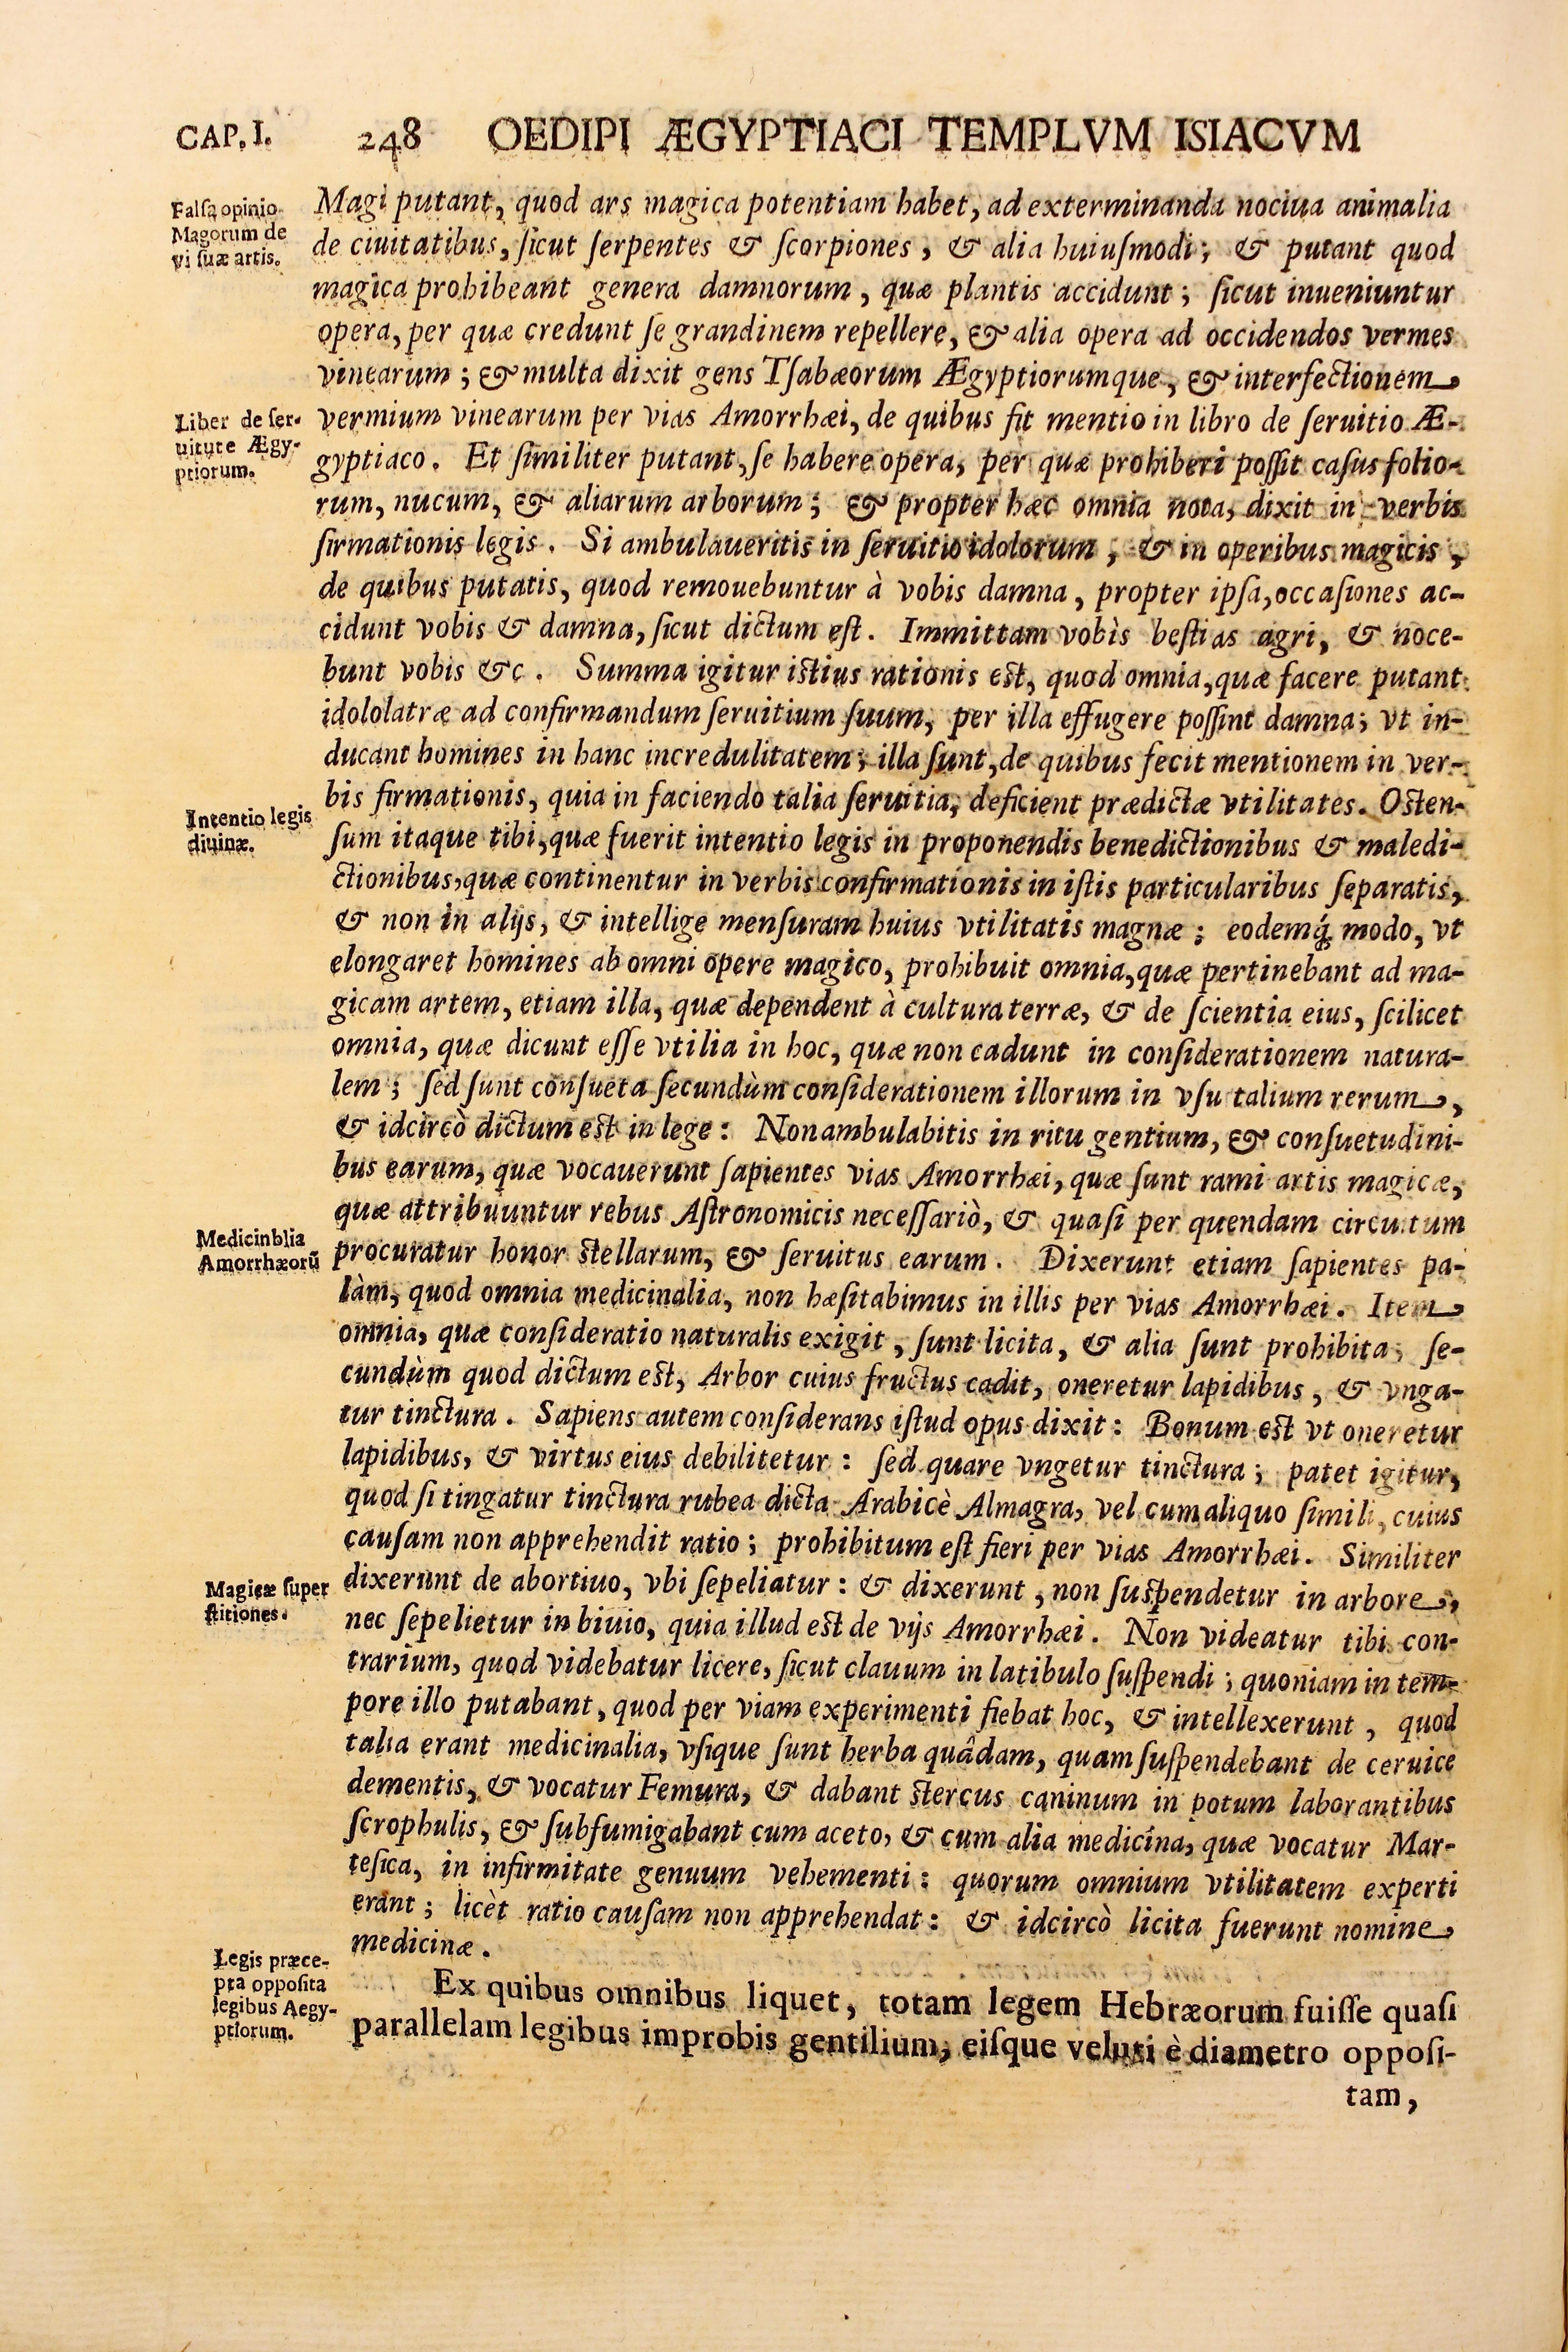 CAP. I. 248 OEDIPI ÆGYPTIACI TEMPLVM ISIACVM
Falſa opinio
Magorum de
vi ſuæ artis.
Magi putant, quod ars magica potentiam habet, ad exterminanda nociua animalia
de ciuitatibus, ſicut ſerpentes & ſcorpiones, & alia huiuſmodi; & putant quod
magica prohibeant genera damnorum, quæ plantis accidunt; ſicut inueniuntur
opera, per quæ credunt ſe grandinem repellere, & alia opera ad occidendos vermes
vinearum; & multa dixit gens Tſabæorum Ægyptiorumque, & interfectionem
Liber de ſer-
uitute Ægy-
ptiorum.
vermium vinearum per vias Amorrhæi, de quibus fit mentio in libro de ſeruitio Æ-
gyptiaco. Et ſimiliter putant, ſe habere opera, per quæ prohiberi poſſit caſus folio-
rum, nucum, & aliarum arborum; & propter hæc omnia nota, dixit in verbis
firmationis legis. Si ambulaueritis in ſeruitio idolorum, & in operibus magicis,
de quibus putatis, quod remouebuntur à vobis damna, propter ipſa, occaſiones ac-
cidunt vobis & damna, ſicut dictum eſt. Immittam vobìs beſtias agri, & noce-
bunt vobis &c. Summa igitur iſtius rationis eſt, quod omnia, quæ facere putant
idololatræ ad confirmandum ſeruitium ſuum, per illa effugere poſſint damna; vt in-
ducant homines in hanc incredulitatem; illa ſunt, de quibus fecit mentionem in ver-
bis firmationis, quia in faciendo talia ſeruitia, deficient prædictæ vtilitates. Oſten-
Intentio legis
diuinæ.
ſum itaque tibi, quæ fuerit intentio legis in proponendis benedictionibus & maledi-
ctionibus, quæ continentur in verbis confirmationis in iſtis particularibus ſeparatis,
& non in alijs, & intellige menſuram huius vtilitatis magnæ; eodemq́; modo, vt
elongaret homines ab omni opere magico, prohibuit omnia, quæ pertinebant ad ma-
gicam artem, etiam illa, quæ dependent à cultura terræ, & de ſcientia eius, ſcilicet
omnia, quæ dicunt eſſe vtilia in hoc, quæ non cadunt in conſiderationem natura-
lem; ſed ſunt conſueta ſecundùm conſiderationem illorum in vſu talium rerum,
& idcircò dictum eſt in lege: Non ambulabitis in ritu gentium, & conſuetudini-
bus earum, quæ vocauerunt ſapientes vias Amorrhæi, quæ ſunt rami artis magicæ,
quæ attribuuntur rebus Aſtronomicis neceſſariò, & quaſi per quendam circuitum
Medicinblia
Amorrhæorũ
procuratur honor ſtellarum, & ſeruitus earum. Dixerunt etiam ſapientes pa-
làm, quod omnia medicinalia, non hæſitabimus in illis per vias Amorrhæi. Item
omnia, quæ conſideratio naturalis exigit, ſunt licita, & alia ſunt prohibita; ſe-
cundùm quod dictum eſt, Arbor cuius fructus cadit, oneretur lapidibus, & vnga-
tur tinctura. Sapiens autem conſiderans iſtud opus dixit: Bonum eſt vt oneretur
lapidibus, & virtus eius debilitetur: ſed quare vngetur tinctura; patet igitur,
quod ſi tingatur tinctura rubea dicta Arabicè Almagra, vel cum aliquo ſimili, cuius
cauſam non apprehendit ratio; prohibitum eſt fieri per vias Amorrhæi. Similiter
Magicæ ſuper
ſtitiones.
dixerunt de abortiuo, vbi ſepeliatur: & dixerunt, non ſuſpendetur in arbore,
nec ſepelietur in biuio, quia illud eſt de vijs Amorrhæi. Non videatur tibi con-
trarium, quod videbatur licere, ſicut clauum in latibulo ſuſpendi; quoniam in tem-
pore illo putabant, quod per viam experimenti fiebat hoc, & intellexerunt, quod
talia erant medicinalia, vſique ſunt herba quâdam, quam ſuſpendebant de ceruice
dementis, & vocatur Femura, & dabant ſtercus caninum in potum laborantibus
ſcrophulis, & ſubfumigabant cum aceto, & cum alia medicina, quæ vocatur Mar-
teſica, in infirmitate genuum vehementi: quorum omnium vtilitatem experti
erant; licèt ratio cauſam non apprehendat: & idcircò licita fuerunt nomine
medicinæ.
Legis præce-
pta oppoſita
legibus Aegy-
ptiorum.
Ex quibus omnibus liquet, totam legem Hebræorum fuiſſe quaſi
parallelam legibus improbis gentilium, eiſque veluti è diametro oppoſi-
tam,